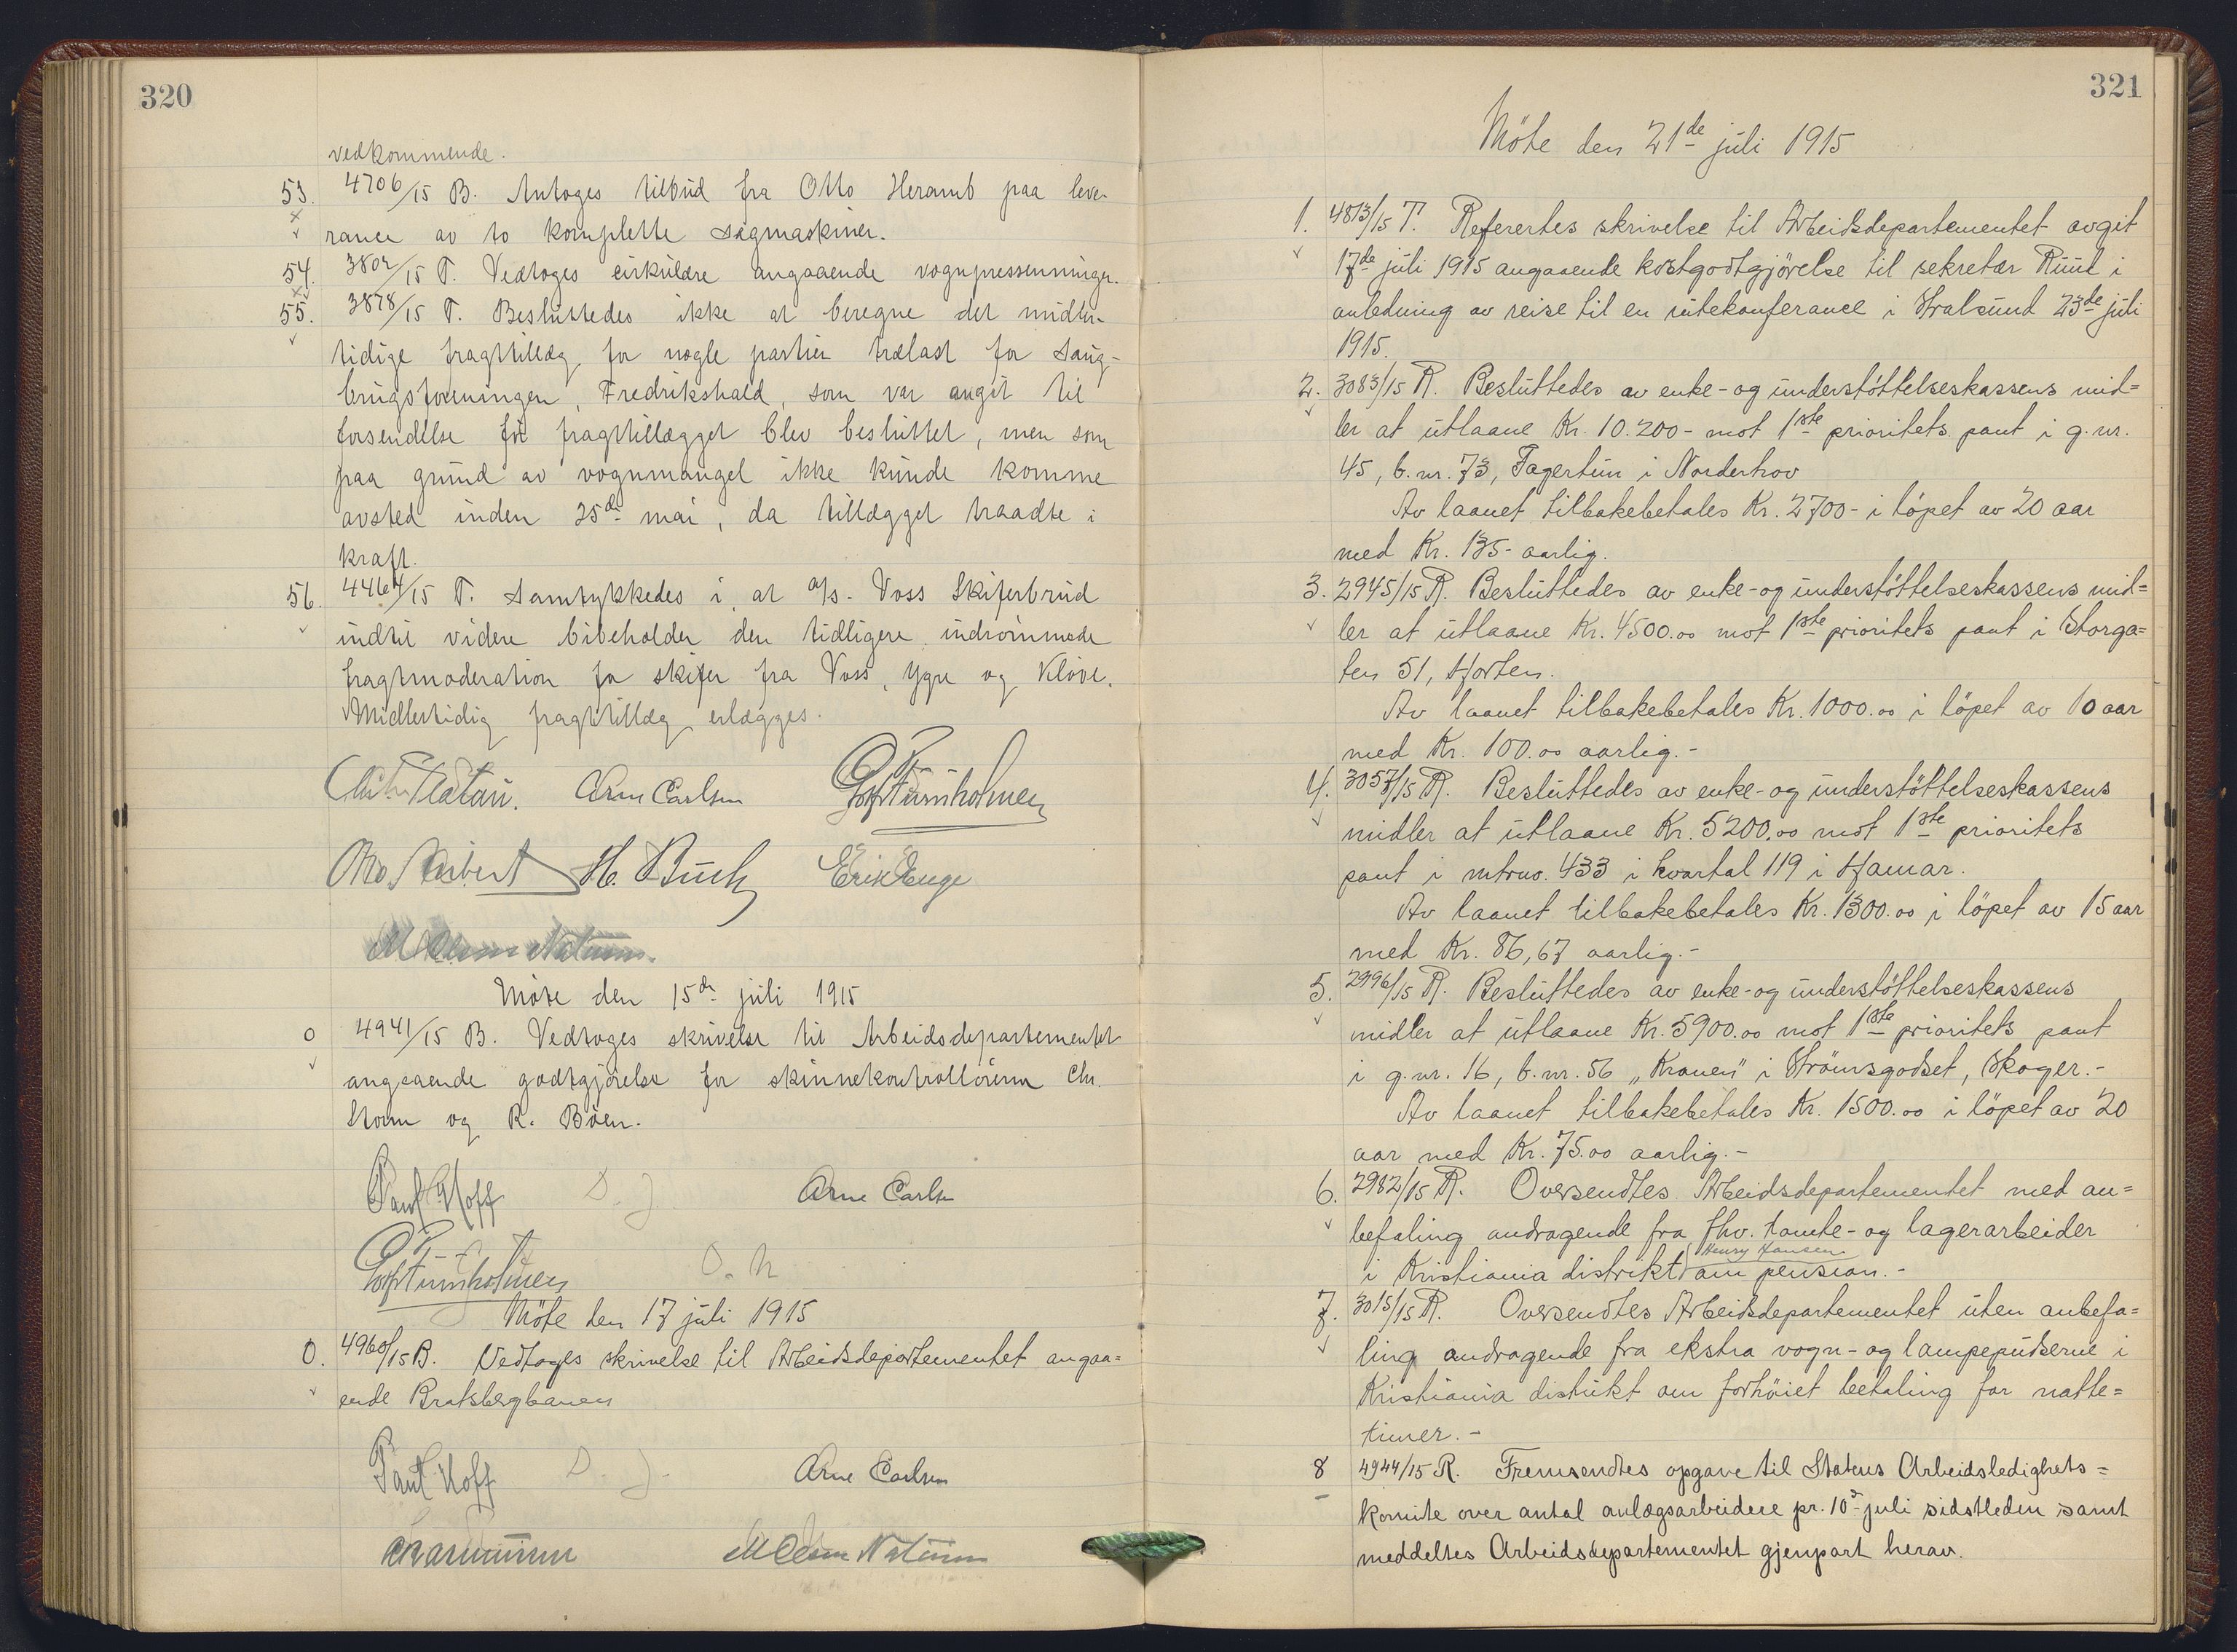 320
vedkommende.
53. 4706/15 B. Antoges tilbud fra Otto Heramb paa leve-
rance av to komplette sagmaskiner.
54. 3802/15 T. Vedtoges cirkulære angaaende vognpressenninger.
55. 3878/15 T. Besluttedes ikke at beregne det midler-
tidige fragttillæg for nogle partier trælast for Saug-
brugsforeningen, Fredrikshald, som var angit til
forsendelse før fragttillægget blev besluttet, men som
paa grund av vognmangel ikke kunde komme
avsted inden 25de mai, da tillægget traadte i
kraft.
56. 4464/15 T. Samtykkedes i, at A/S. Voss Skiferbrud
indtil videre bibeholder den tidligere indrømmede
fragtmoderation for skifer fra Voss, Ygre og Kløve.
Midlertidig fragttillæg erlægges.
Arne Carlsen
H. Buch Erik Enge
Møte den 15de juli 1915
0 4941/15 B. Vedtoges skrivelse til Arbeidsdepartementet
angaaende godtgjørelse for skinnekontrollørerne Chr.
Storm og R. Bøen.
Paul Hoff D. J. Arne Carlsen
O. N
Möte den 17 juli 1915
0. 4960/15 B. Vedtoges skrivelse til Arbeidsdepartementet angaa=
ende Bratsbergbanen
Paul Hoff D. J. Arne Carlsen
321
Möte den 21de juli 1915
1. 4813/15 T. Referertes skrivelse til Arbeidsdepartementet avgit
17de juli 1915 angaaende kostgodtgjörelse til sekretær Ruud i
anledning av reise til en rutekonferance i Stralsund 23de juli
1915.
2. 3083/15 R. Besluttedes av enke- og understöttelseskassens mid=
ler at utlaane Kr. 10.200- mot 1ste prioritets pant i g. nr.
45, b. nr. 73, Fagertun i Norderhov
Av laanet tilbakebetales Kr. 2700- i löpet av 20 aar
med Kr. 135- aarlig.
3. 2945/15 R. Besluttedes av enke- og understöttelseskassens mid=
ler at utlaane Kr. 4500.00 mot 1ste prioritets pant i Storga=
ten 51, Horten.
Av laanet tilbakebetales Kr. 1000.00 i löpet av 10 aar
med Kr. 100.00 aarlig.-
4. 3057/15 R. Besluttedes av enke- og understöttelseskassens
midler at utlaane Kr. 5200.00 mot 1ste prioritets
pant i mtrno. 433 i kvartal 119 i Hamar.
Av laanet tilbakebetales Kr. 1300.00 i löpet av 15 aar
med Kr. 86,67 aarlig.-
5. 2996/15 R. Besluttedes av enke- og understöttelseskassens
midler at utlaane Kr. 5900.00 mot 1ste prioritets pant
i g. nr. 16, b. nr. 56 „Kronen" i Strömsgodset, Skoger.-
Av laanet tilbakebetales Kr. 1500.00 i löpet av 20
aar med Kr. 75.00 aarlig.-
6. 2982/15 R. Oversendtes Arbeidsdepartementet med an=
befaling andragende fra fhv. tomte- og lagerarbeider
Henry Hansen
i Kristiania distrikt om pension.-
7. 3015/15 R. Oversendtes Arbeidsdepartementet uten anbefa=
ling andragende fra ekstra vogn- og lampepudserne i
Kristiania distrikt om forhöiet betaling for natte=
timer.-
8 4944/15 R. Fremsendtes opgave til Statens Arbeidsledighets=
komite over antal anlægsarbeidere pr. 10de juli sidstleden samt
meddeltes Arbeidsdepartementet gjenpart herav.